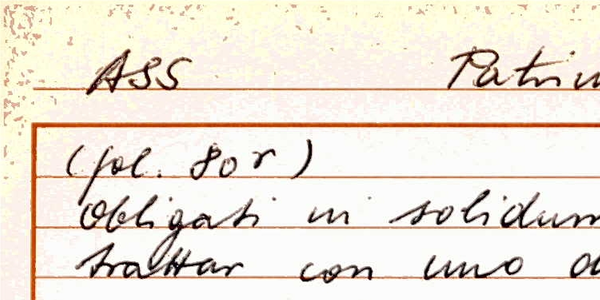 ASS Patrim
(fol. 80 r)
Obligati in solidum
trattar con uno d